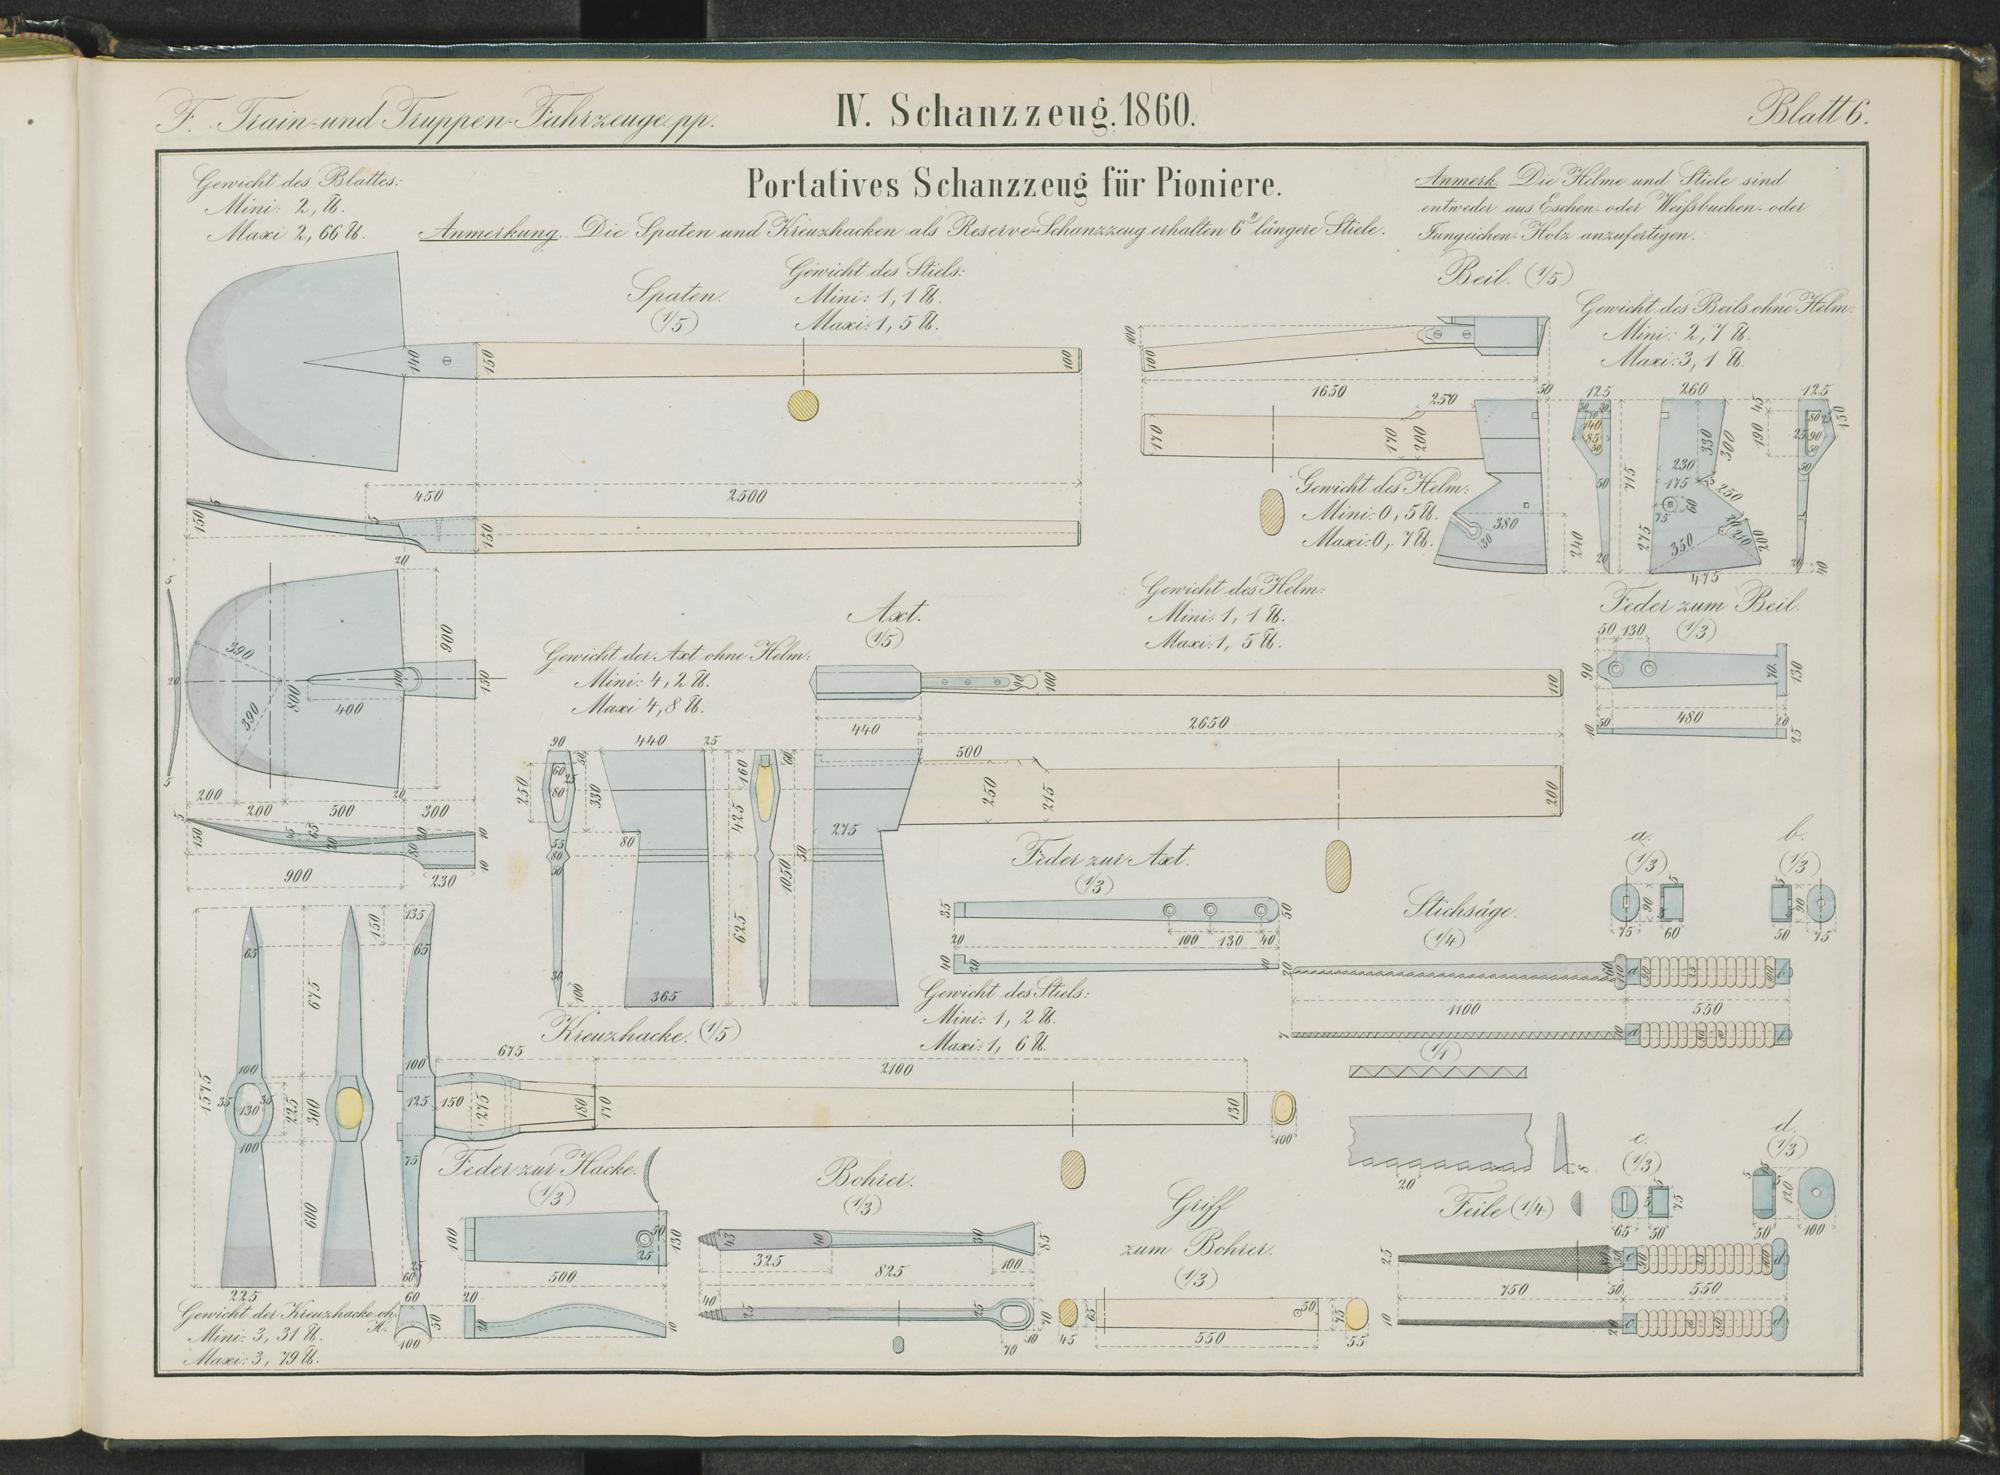 F. Train- und Truppen-Fahrzeuge pp.
IV. Schanzzeug. 1860.
Blatt 6.
Portatives Schanzzeug für Pioniere.
Anmerkung. Die Spaten und Kreuzhacken als Reserve-Schanzzeug erhalten 6" längere Stiele.
Anmerk. Die Helme und Stiele sind
entweder aus Eschen- oder Weißbuchen- oder
Jungeichen-Holz anzufertigen.
Gewicht des Blattes:
Mini: 2, ℔.
Maxi 2, 66 ℔.
Spaten.
(1/5)
Gewicht des Stiels:
Mini: 1, 1 ℔.
Maxi: 1, 5 ℔.
140
150
100
450
2500
5
150
5
150
20
5
20
5
390
390
800
400
100
900
150
200
200
500
300
20
5
150
900
230
80
10
10
Beil. (1/5)
Gewicht des Beils ohne Helm:
Mini: 2, 7 ℔.
Maxi: 3, 1 ℔.
100
100
1650
50
250
170
170
200
380
30
240
Gewicht des Helm:
Mini: 0, 5 ℔.
Maxi: 0, 7 ℔.
125
140
85
50
50
715
20
260
330
300
230
175
250
60
75
275
350
200
475
125
45
190
150
80
25
25
90
50
50
20
40
Feder zum Beil.
(1/3)
50
130
90
70
130
480
50
20
10
25
Axt.
(1/5)
Gewicht der Axt ohne Helm:
Mini: 4, 2 ℔.
Maxi 4, 8 ℔.
Gewicht des Helm:
Mini: 1, 1 ℔.
Maxi: 1, 5 ℔.
100
110
440
2650
500
250
215
200
90
440
25
250
60
25
80
50
330
55
80
50
80
30
100
365
160
425
625
60
50
1050
275
Feder zur Axt.
(1/3)
35
50
20
100
130
40
40
20
10
Stichsäge.
(1/4)
a.
(1/3)
5
90
75
60
b.
(1/3)
5
90
50
75
20
a
b
1100
550
7
10
a
b
(1/1)
20
8
Kreuzhacke. (1/5)
Gewicht des Stiels:
Mini: 1, 2 ℔.
Maxi: 1, 6 ℔.
675
2100
150
275
180
170
130
100
1575
65
100
35
130
35
225
100
225
150
675
300
600
135
65
100
125
75
25
60
Gewicht der Kreuzhacke oh.
H.
Mini: 3, 31 ℔.
Maxi: 3, 79 ℔.
Feder zur Hacke.
(1/3)
100
50
25
130
500
60
50
100
20
20
10
Bohrer.
(1/3)
43
40
30
85
325
100
825
40
25
25
70
10
70
Griff
zum Bohrer.
(1/3)
45
65
50
550
75
55
Feile (1/4)
c.
(1/3)
5
75
65
50
d.
(1/3)
5
120
50
100
25
c
d
750
50
550
10
20
c
d